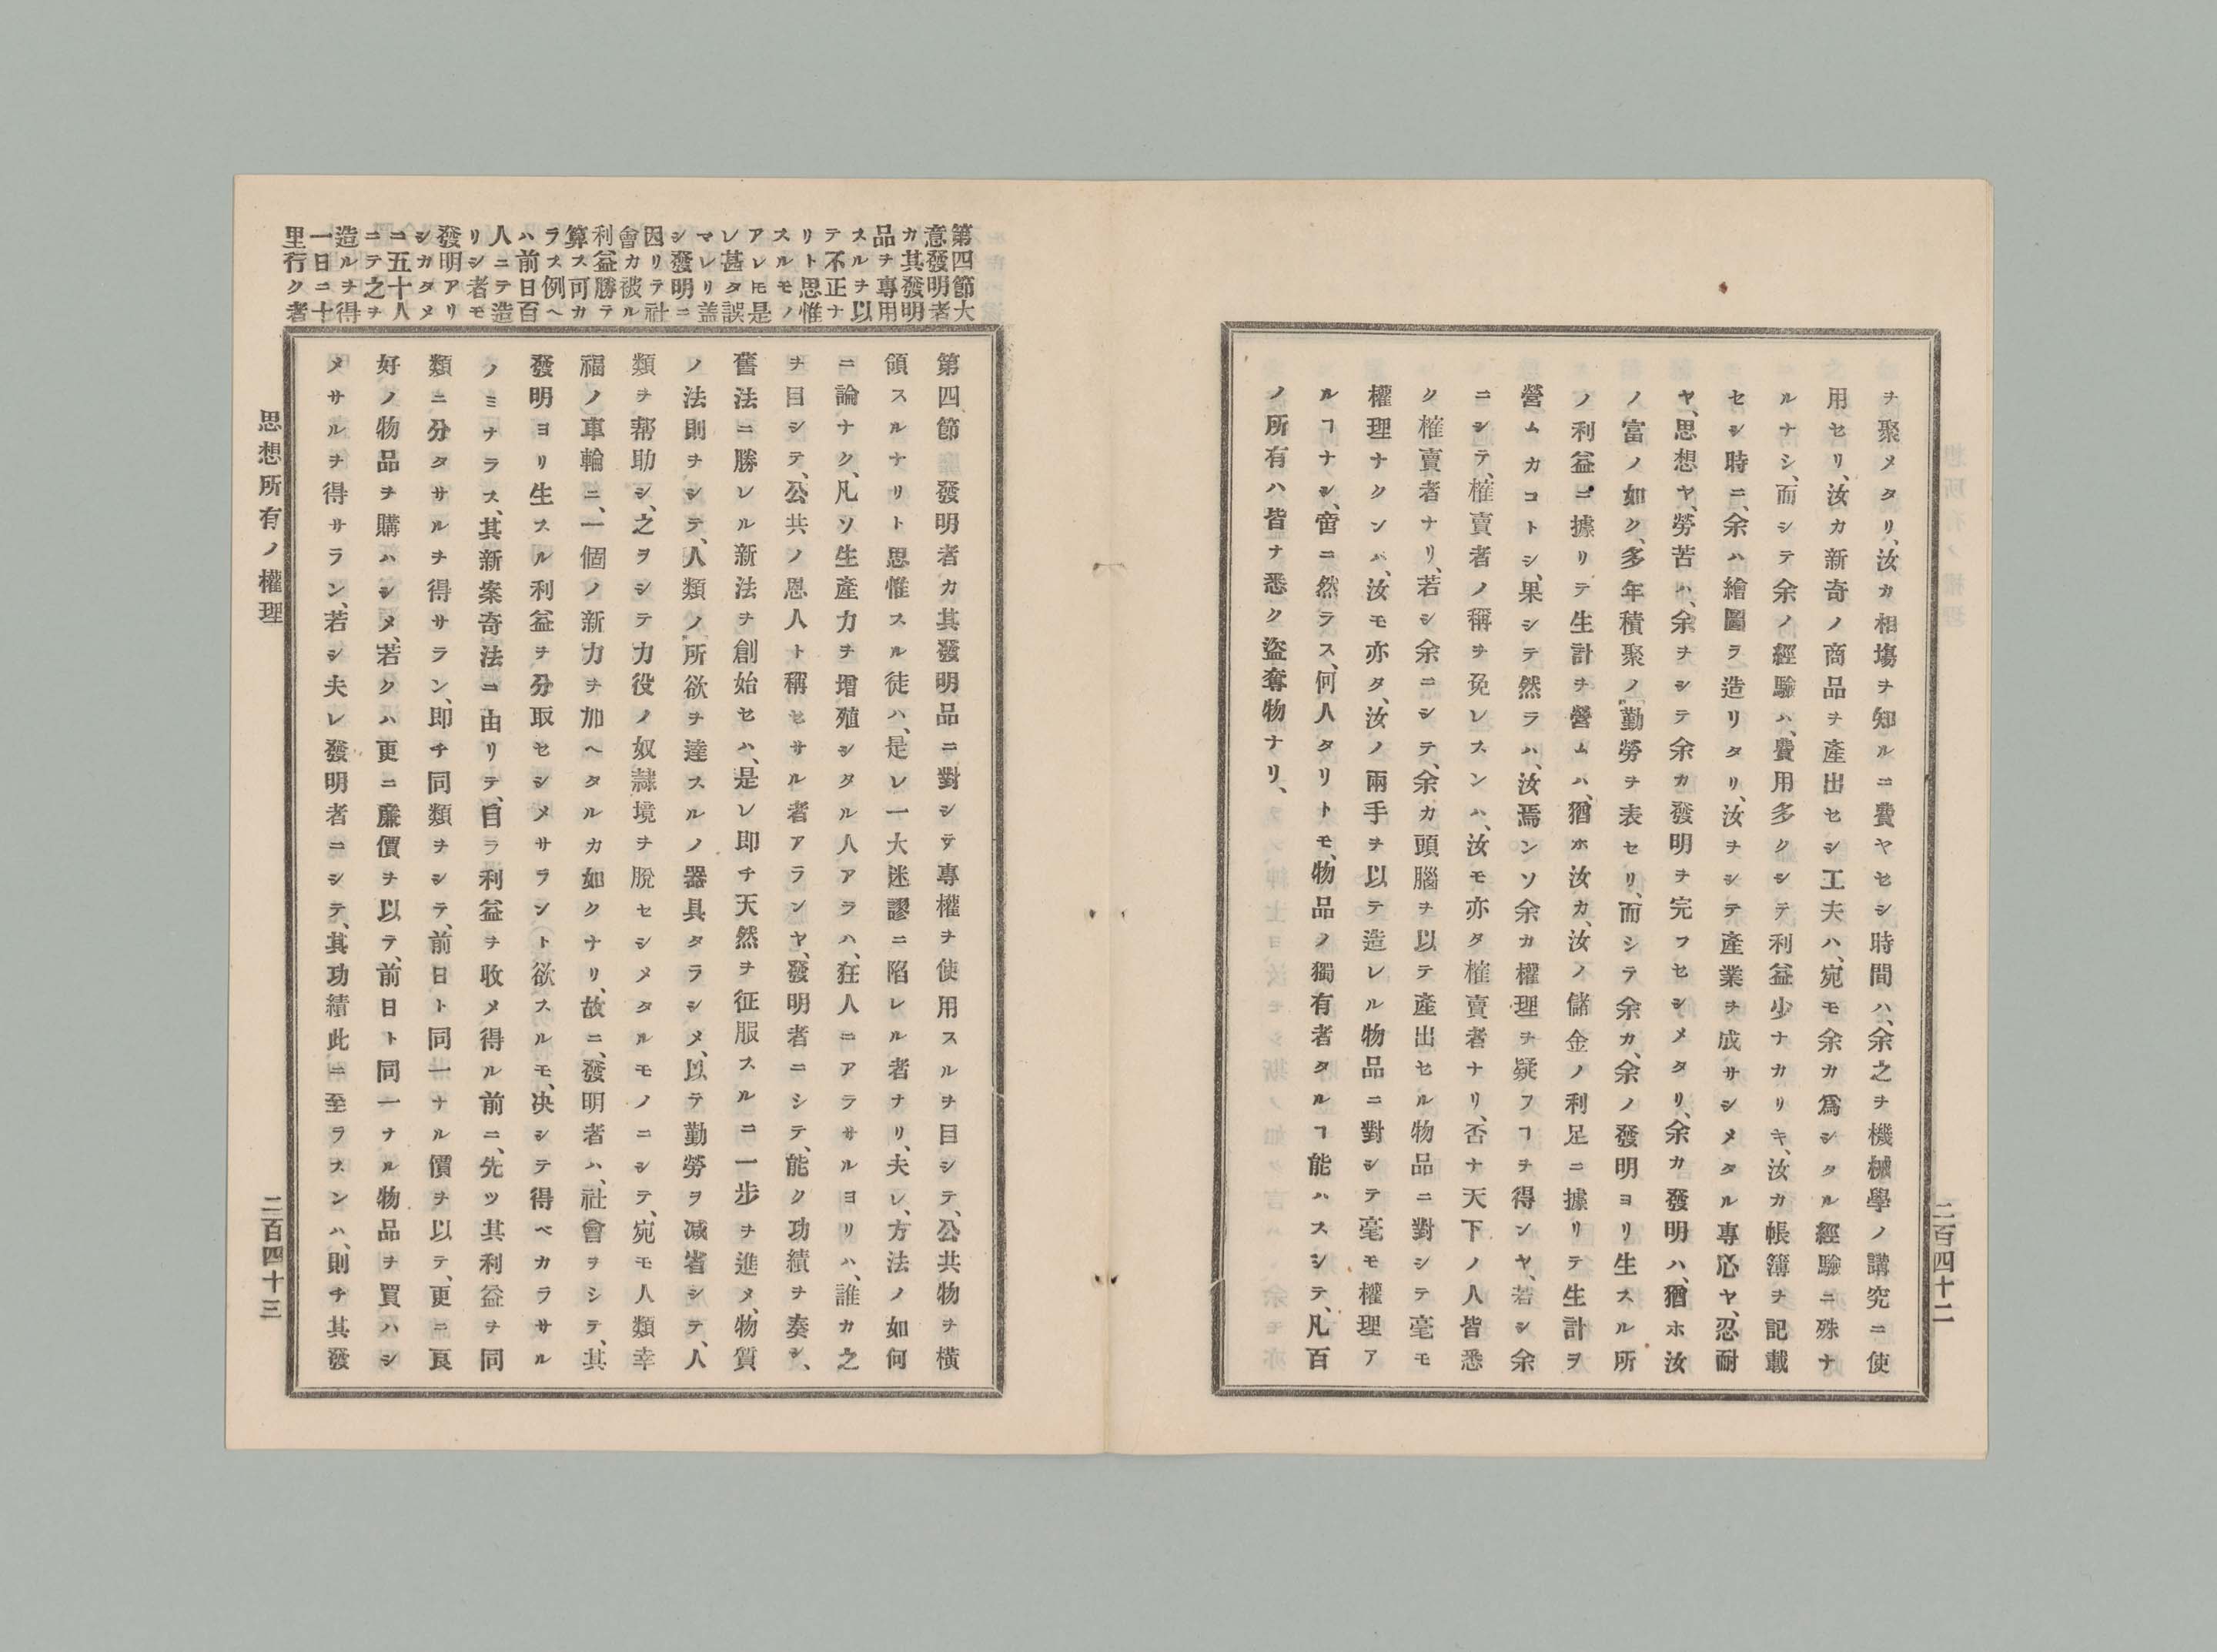 ヲ聚メタリ、汝カ相塲ヲ知ルニ費ヤセシ時間ハ、余之ヲ機械學ノ講究ニ使
用セリ、汝カ新奇ノ商品ヲ產出セシ工夫ハ、宛モ余カ爲シタル經驗ニ殊ナ
ルナシ、而シテ余ノ經驗ハ、費用多クシテ利益少ナカリキ、汝カ帳簿ヲ記載
セシ時ニ、余ハ繪圖ラ造リタリ、汝ヲシテ產業ヲ成サシメタル專心ヤ、忍耐
ヤ、思想ヤ、勞苦ハ、余ヲシテ余カ發明ヲ完フセシメタリ、余カ發明ハ、猶ホ汝
ノ富ノ如ク、多年積聚ノ勤勞ヲ表セリ、而シラ余カ、余ノ發明ヨリ生スル所
ノ利益ニ據リテ生計ヲ營ムハ、猶ホ汝カ、汝ノ儲金ノ利足ニ據リテ生計ヲ
營ムカコトシ、果シテ然ラハ、汝焉ンソ余カ權理ヲ疑フヿヲ得ンヤ、若シ余
ニシテ、榷賣者ノ稱ヲ免レスンハ、汝モ亦タ榷賣者ナリ、否ナ天下ノ人皆悉
ク榷賣者ナリ、若シ余ニシテ、余カ頭腦ヲ以テ產出セル物品ニ對シテ毫モ
權理ナクンバ、汝モ亦タ、汝ノ兩手ヲ以テ造レル物品ニ對シテ毫モ權理ア
ルヿナシ、啻ニ然ラス、何人タリトモ、物品ノ獨有者タルヿ能ハスシテ、凡百
ノ所有ハ皆ナ悉ク盜奪物ナリ、
二百四十二
第四節大
意發明者
カ其發明
品ヲ專用
スルヲ以
テ不正ナ
リト思惟
スルモノ
アレㄷ是
レ甚タ誤
マレリ蓋
シ發明ニ
因リテ社
會カ被ル
利益勝テ
算ス可カ
ラス例ヘ
ハ前日百
人ニテ造
リシ者モ
發明アリ
シカタメ
ニ五十人
ニテ之ヲ
造ルヲ得
一日ニ十
里行ク者
第四節 發明者カ其發明品ニ對シテ專權ヲ使用スルヲ目シテ、公共物ヲ橫
領スルナリト思惟スル徒ハ、是レ一大迷謬ニ陷レル者ナリ、夫レ、方法ノ如何
ニ論ナク、凡ソ生產力ヲ增殖シタル人アラハ、狂人ニアラサルヨリハ、誰カ之
ヲ目シテ、公共ノ恩人ト稱セサル者アランヤ、發明者ニシテ、能ク功績ヲ奏シ、
舊法ニ勝レル新法ヲ創始セハ、是レ即チ天然ヲ征服スルニ一步ヲ進メ、物質
ノ法則ヲシテ、人類ノ所欲ヲ達スルノ器具タラシメ、以テ勤勞ヲ减省シテ、人
類ヲ帮助シ、之ヲシテ力役ノ奴隷境ヲ脫セシメタルモノニシテ、宛モ人類幸
福ノ車輪ニ、一個ノ新力ヲ加ヘタルカ如クナリ、故ニ、發明者ハ、社會ヲシテ、其
發明ヨリ生スル利益ヲ分取セシメサラント欲スルモ、决シテ得ベカラサル
ノミナラス、其新案奇法ニ由リテ、自ラ利益ヲ收メ得ル前ニ、先ツ其利益ヲ同
類ニ分タサルヲ得サラン、即チ同類ヲシテ、前日ト同一ナル價ヲ以テ、更ニ良
好ノ物品ヲ購ハシメ、若クハ更ニ廉價ヲ以テ、前日ト同一ナル物品ヲ買ハシ
メサルヲ得サラン、若シ夫レ發明者ニシテ、其功績此ニ至ラスンハ、則チ其發
思想所有ノ權理
二百四十三